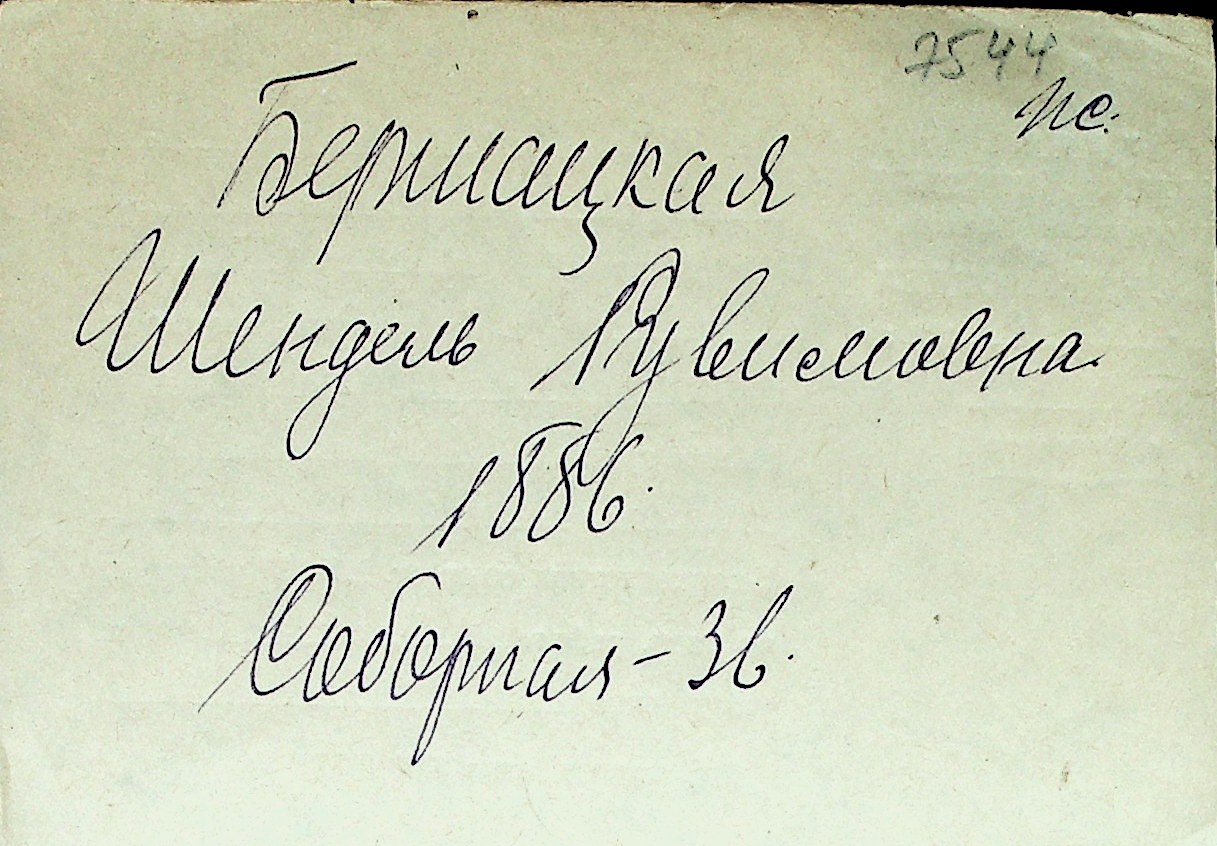 7544
пс.
Берницкая
Шендель Рувимовна
1886.
Соборная – 36.